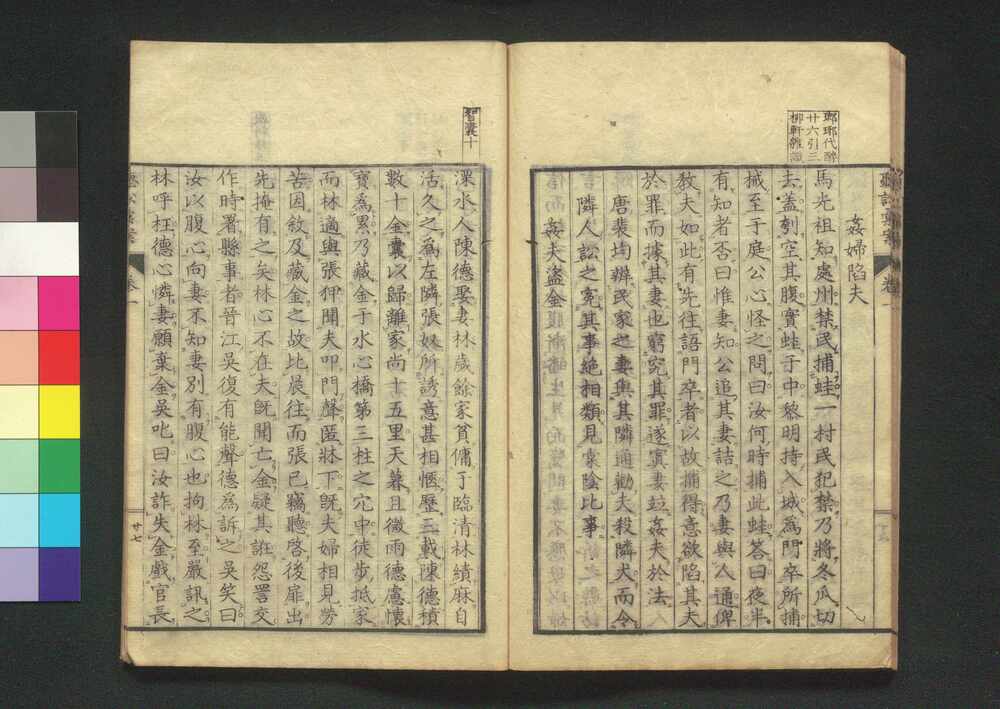 瑯琊代醉
廿六引三
柳軒雜識
姦婦陷夫
馬光祖知處州禁民捕蛙一村民犯禁乃將冬瓜切
去蓋刳空其腹實蛙于中黎明持入城為門卒所捕
械至于庭公心怪之問曰汝何時捕此蛙答曰夜半
有知者否曰惟妻知公追其妻詰之乃妻與人通俾
教夫如此有先往語門卒者以故捕得意欲陷其夫
於罪而據其妻也窮究其罪遂寘妻竝姦夫於法
唐裴均辨民家之妻與其隣通勸夫殺隣犬而令
隣人訟之寃其事絶相類見棠陰比事
姦夫盜金
智囊十
溧水人陳德娶妻林歲餘家貧傭于臨清林績麻自
活久之為左隣張奴所誘意甚相愜歷三載陳德積
數十金囊以歸離家尚十五里天暮且微雨德慮懷
寶為累乃藏金于水心橋第三柱之穴中徒步抵家
而林適與張狎聞夫叩門聲匿牀下既夫婦相見勞
苦因敘及藏金之故比晨往而張已竊聽啓後扉出
先掩有之矣林心不在夫既聞亡金疑其誑怨詈交
作時署縣事者晉江吳復有能聲德為訴之吳笑曰
汝以腹心向妻不知妻別有腹心也拘林至嚴訊之
林呼枉德心憐妻願棄金吳叱曰汝詐失金戲官長
廿七